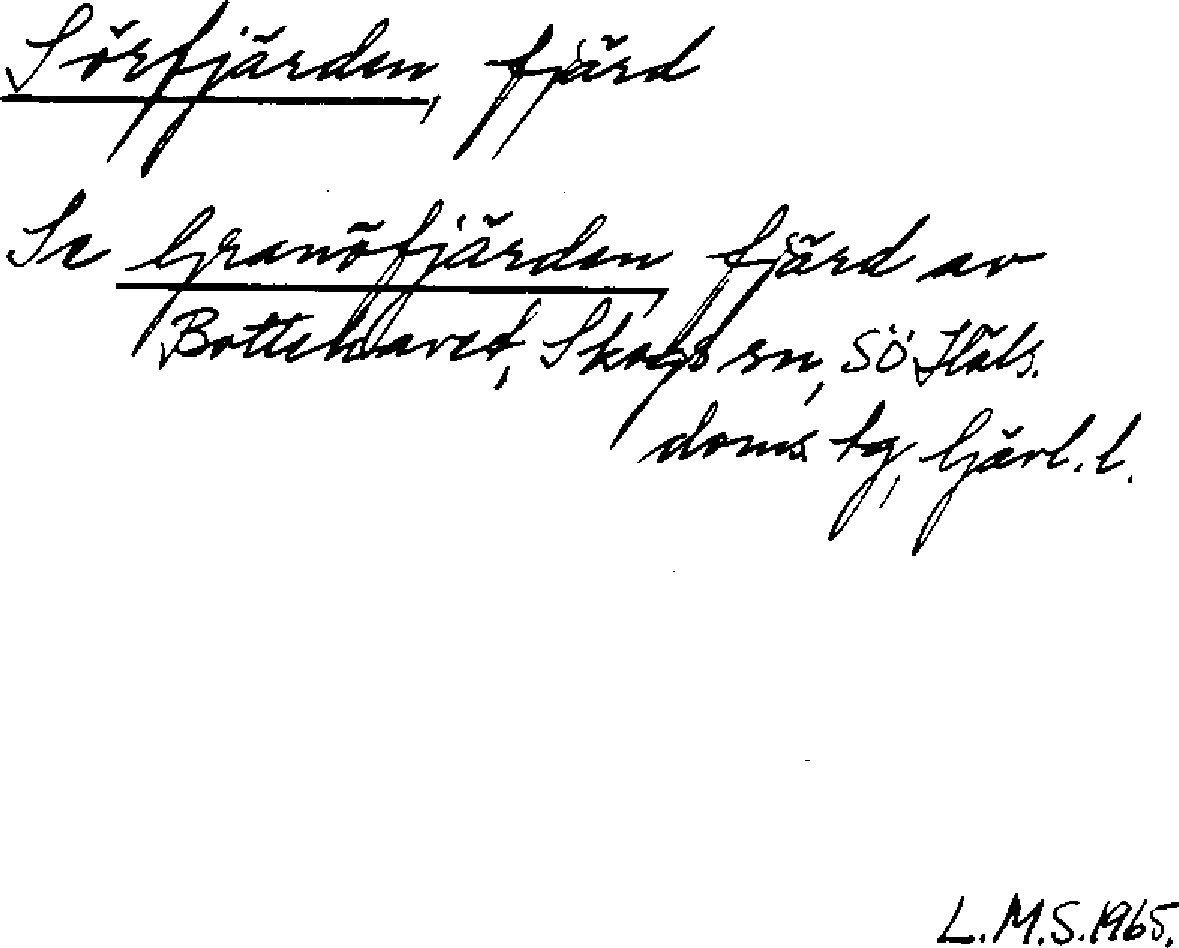 Sörfjärden, fjärd
Se Granöfjärden, fjärd av
Bottenhavet, Skogs sn, Sö Häls.
doms. tg, Gävl. l.
L.M.S. 1965.